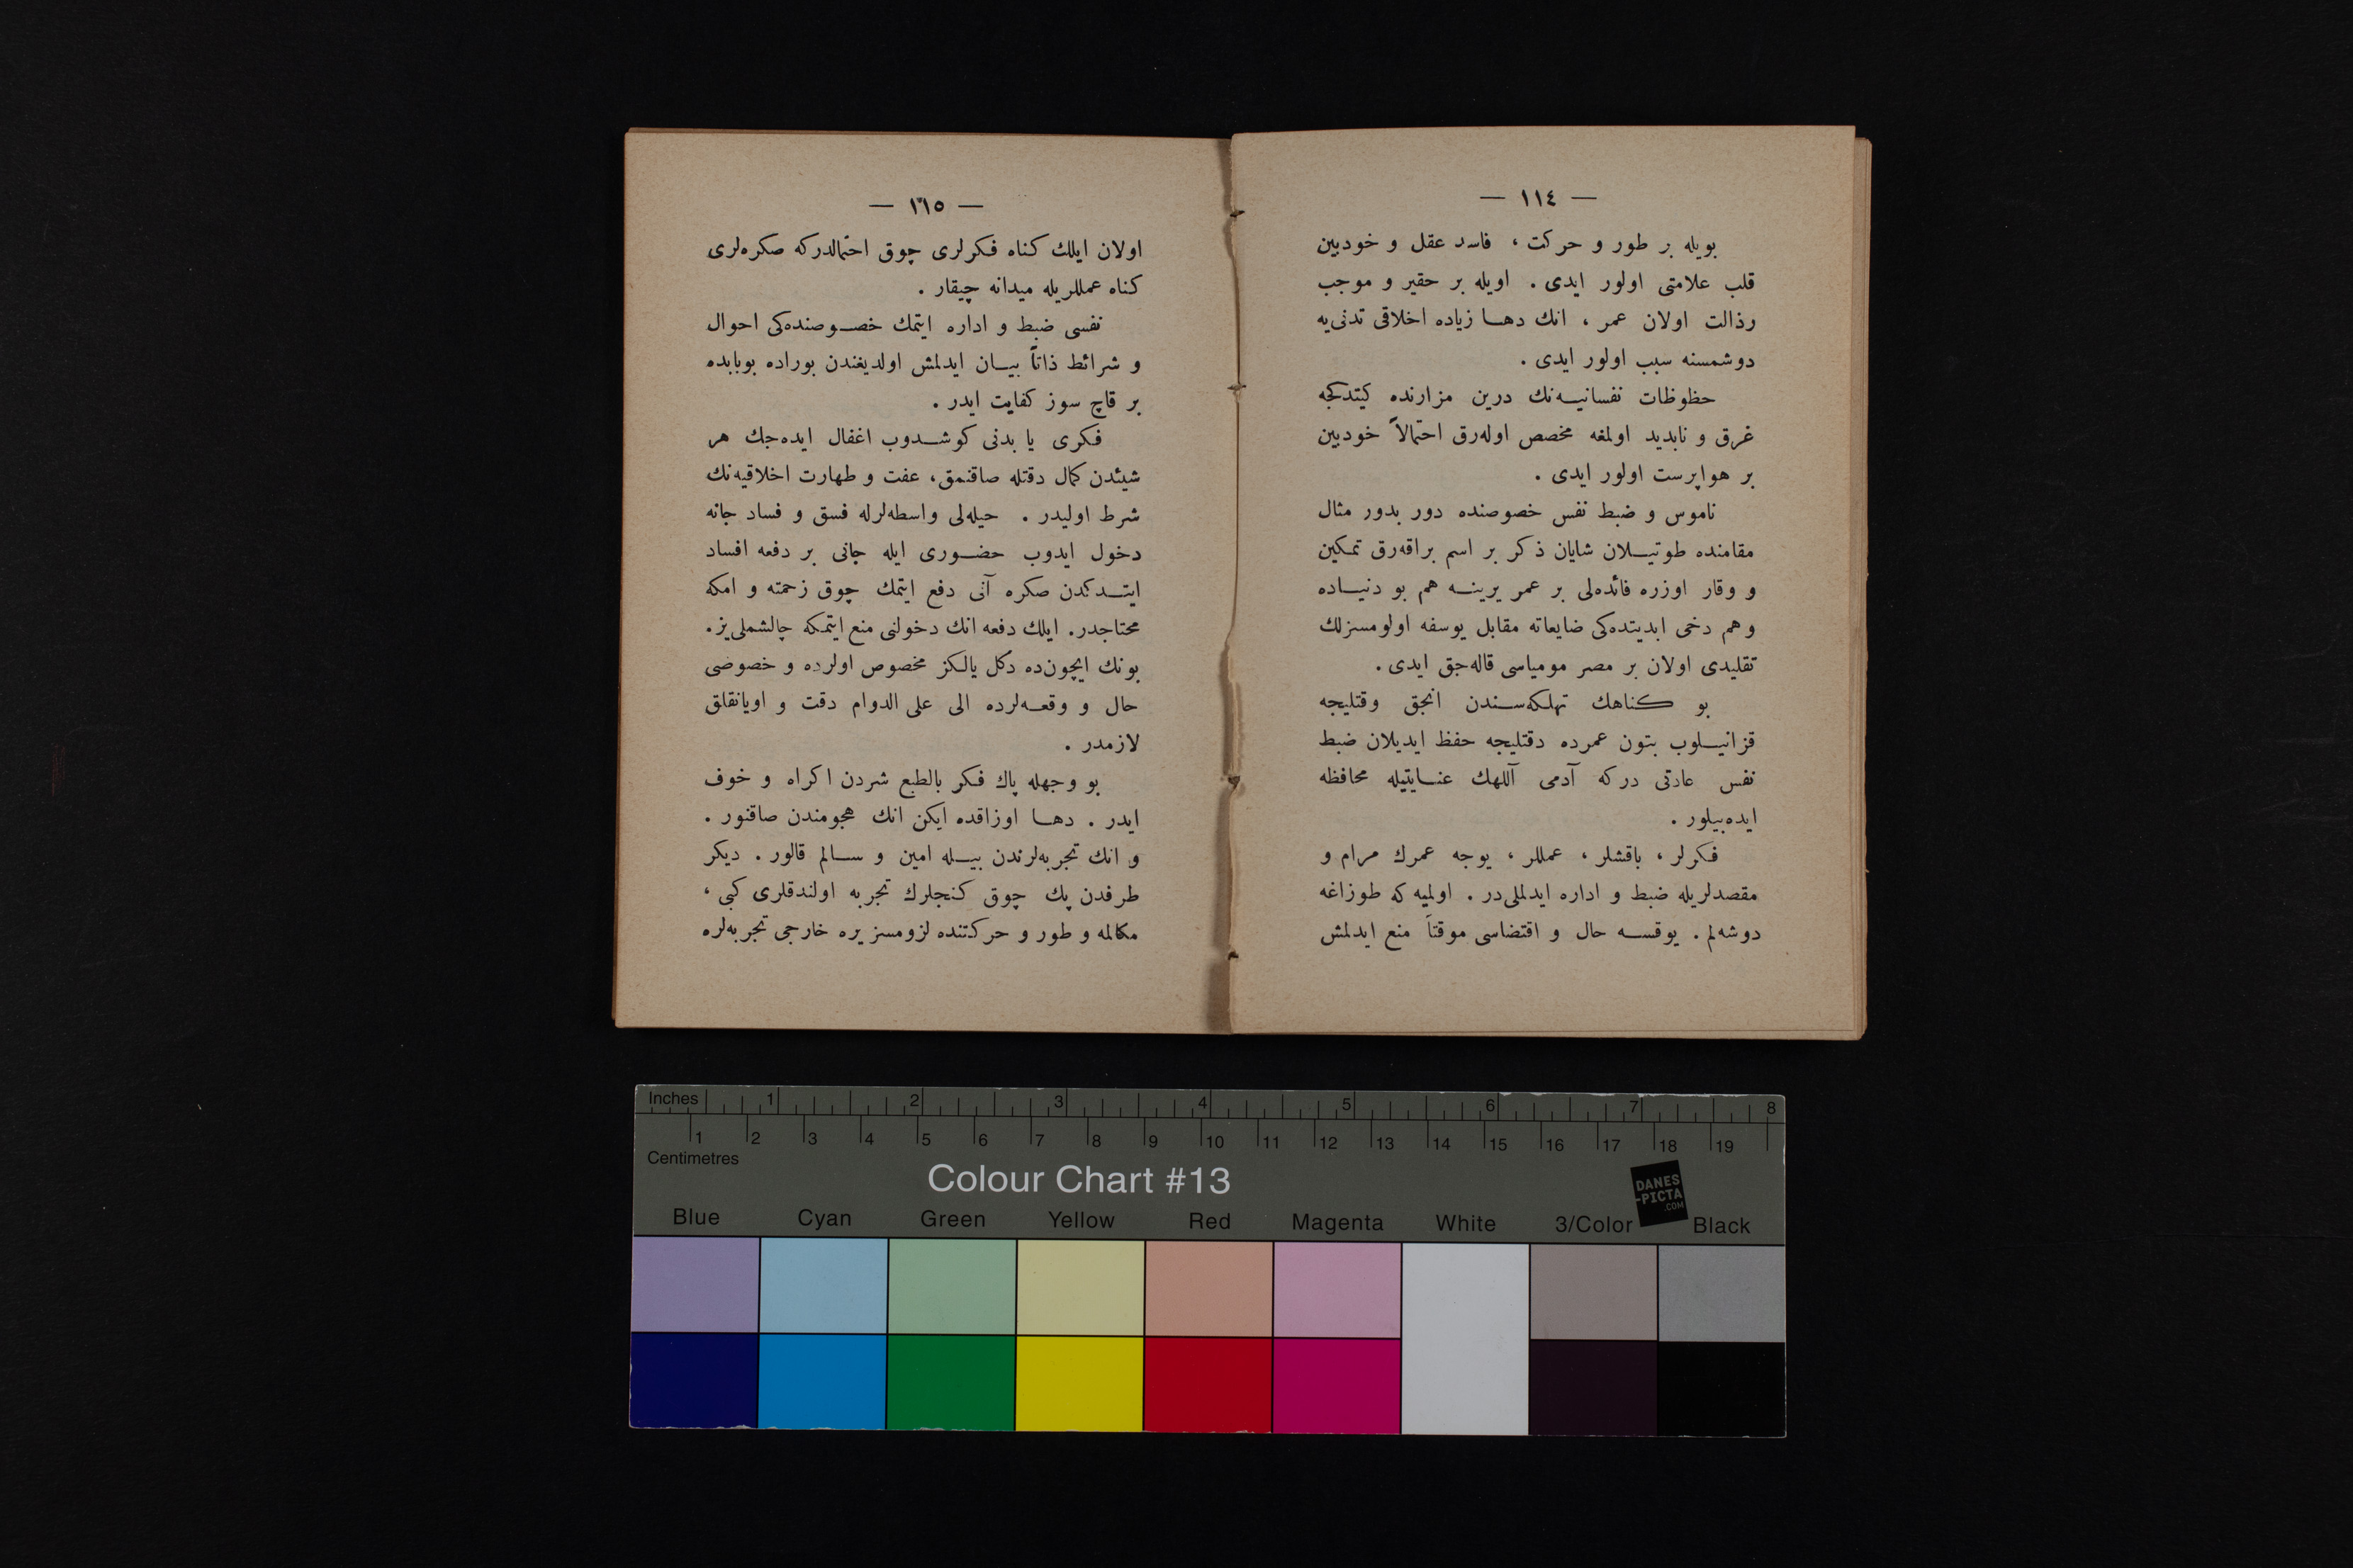 — ١١٤ —
بويله بر طور و حركت ، فاسد عقل و خودبين
قلب علامتى اولور ايدى . اويله بر حقير و موجب
رذالت اولان عمر ، انك دها زياده اخلاقى تدنى‌يه
دوشمسنه سبب اولور ايدى .
حظوظات نفسانيه‌نك درين مزارنده كيتدكجه
غرق و نابديد اولمغه مخصص اوله‌رق احتمالاً خودبين
بر هواپرست اولور ايدى .
ناموس و ضبط نفس خصوصنده دور بدور مثال
مقامنده طوتيلان شايان ذكر بر اسم براقه‌رق تمكين
و وقار اوزره فائده‌لى بر عمر يرينه هم بو دنياده
وهم دخى ابديتده‌كى ضايعاته مقابل يوسفه اولومسزلك
تقليدى اولان بر مصر مومياسى قاله‌جق ايدى .
بو كناهك تهلكه‌سندن انجق وقتليجه
قزانيلوب بتون عمرده دقتليجه حفظ ايديلان ضبط
نفس عادتى دركه آدمى آللهك عنايتيله محافظه
ايده‌بيلور .
فكرلر ، باقشلر ، عمللر ، يوجه عمرك مرام و
مقصدلريله ضبط و اداره ايدلملى‌در . اولميه كه طوزاغه
دوشه‌لم . يوقسه حال و اقتضاسى موقتاً منع ايدلمش
— ١١٥ —
اولان ايلك كناه فكرلرى چوق احتمالدركه صكره‌لرى
كناه عمللريله ميدانه چيقار .
نفسى ضبط و اداره ايتمك خصوصنده‌كى احوال
و شرائط ذاتاً بيان ايدلمش اولديغندن بوراده بوبابده
بر قاچ سوز كفايت ايدر .
فكرى يا بدنى كوشدوب اغفال ايده‌جك هر
شيئدن كمال دقتله صاقنمق، عفت و طهارت اخلاقيه‌نك
شرط اوليدر . حيله‌لى واسطه‌لرله فسق و فساد جانه
دخول ايدوب حضورى ايله جانى بر دفعه افساد
ايتدكدن صكره آنى دفع ايتمك چوق زحمته و امكه
محتاجدر. ايلك دفعه انك دخولنى منع ايتمكه چالشملى‌يز.
بونك ايچون‌ده دكل يالكز مخصوص اولرده و خصوصى
حال و وقعه‌لرده الى على الدوام دقت و اويانقلق
لازمدر .
بو وجهله پاك فكر بالطبع شردن اكراه و خوف
ايدر . دها اوزاقده ايكن انك هجومندن صاقنور .
و انك تجربه‌لرندن بيله امين و سالم قالور . ديكر
طرفدن پك چوق كنجلرك تجربه اولندقلرى كبى ،
مكالمه و طور و حركتنده لزومسز يره خارجى تجربه‌لره
Inches 1 2 3 4 5 6 7 8
1 2 3 4 5 6 7 8 9 10 11 12 13 14 15 16 17 18 19
Centimetres
Colour Chart #13
DANES
-PICTA
.COM
Blue Cyan Green Yellow Red Magenta White 3/Color Black